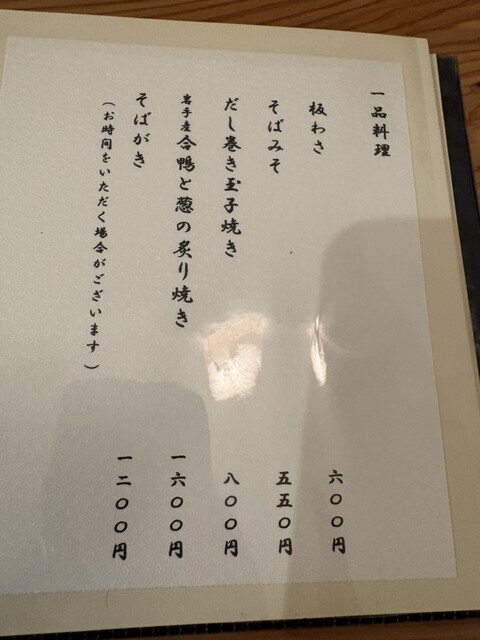 一品料理
板わさ 六〇〇円
そばみそ 五五〇円
だし巻き玉子焼き 八〇〇円
岩手産合鴨と葱の炙り焼き 一六〇〇円
そばがき 一二〇〇円
（お時間をいただく場合がございます）